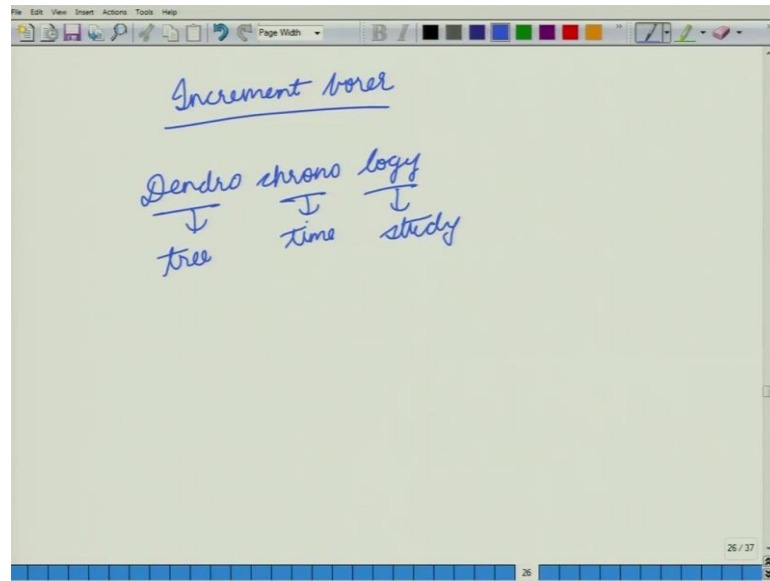 File Edit View Insert Actions Tools Help
Page Width
B I
Increment borer
Dendro chrono logy
tree time study
26 / 37
26